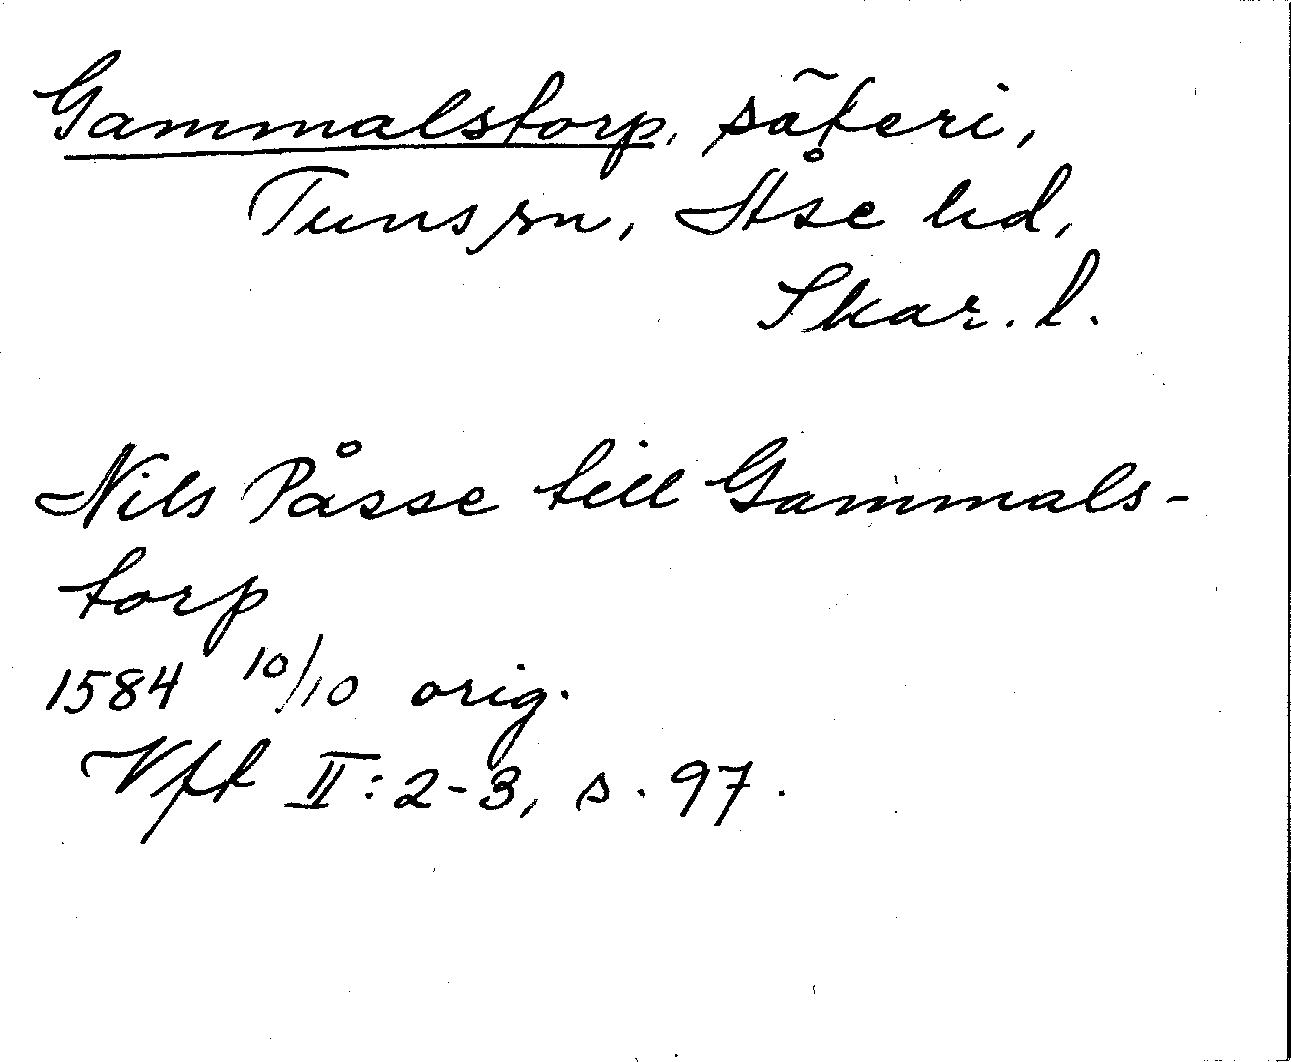 Gammalstorp, säteri,
Tuns sn, Åse hd,
Skar. l.
Nils Påsse till Gammals-
torp
1584 10/10 orig.
Vft II:2-3, s. 97.